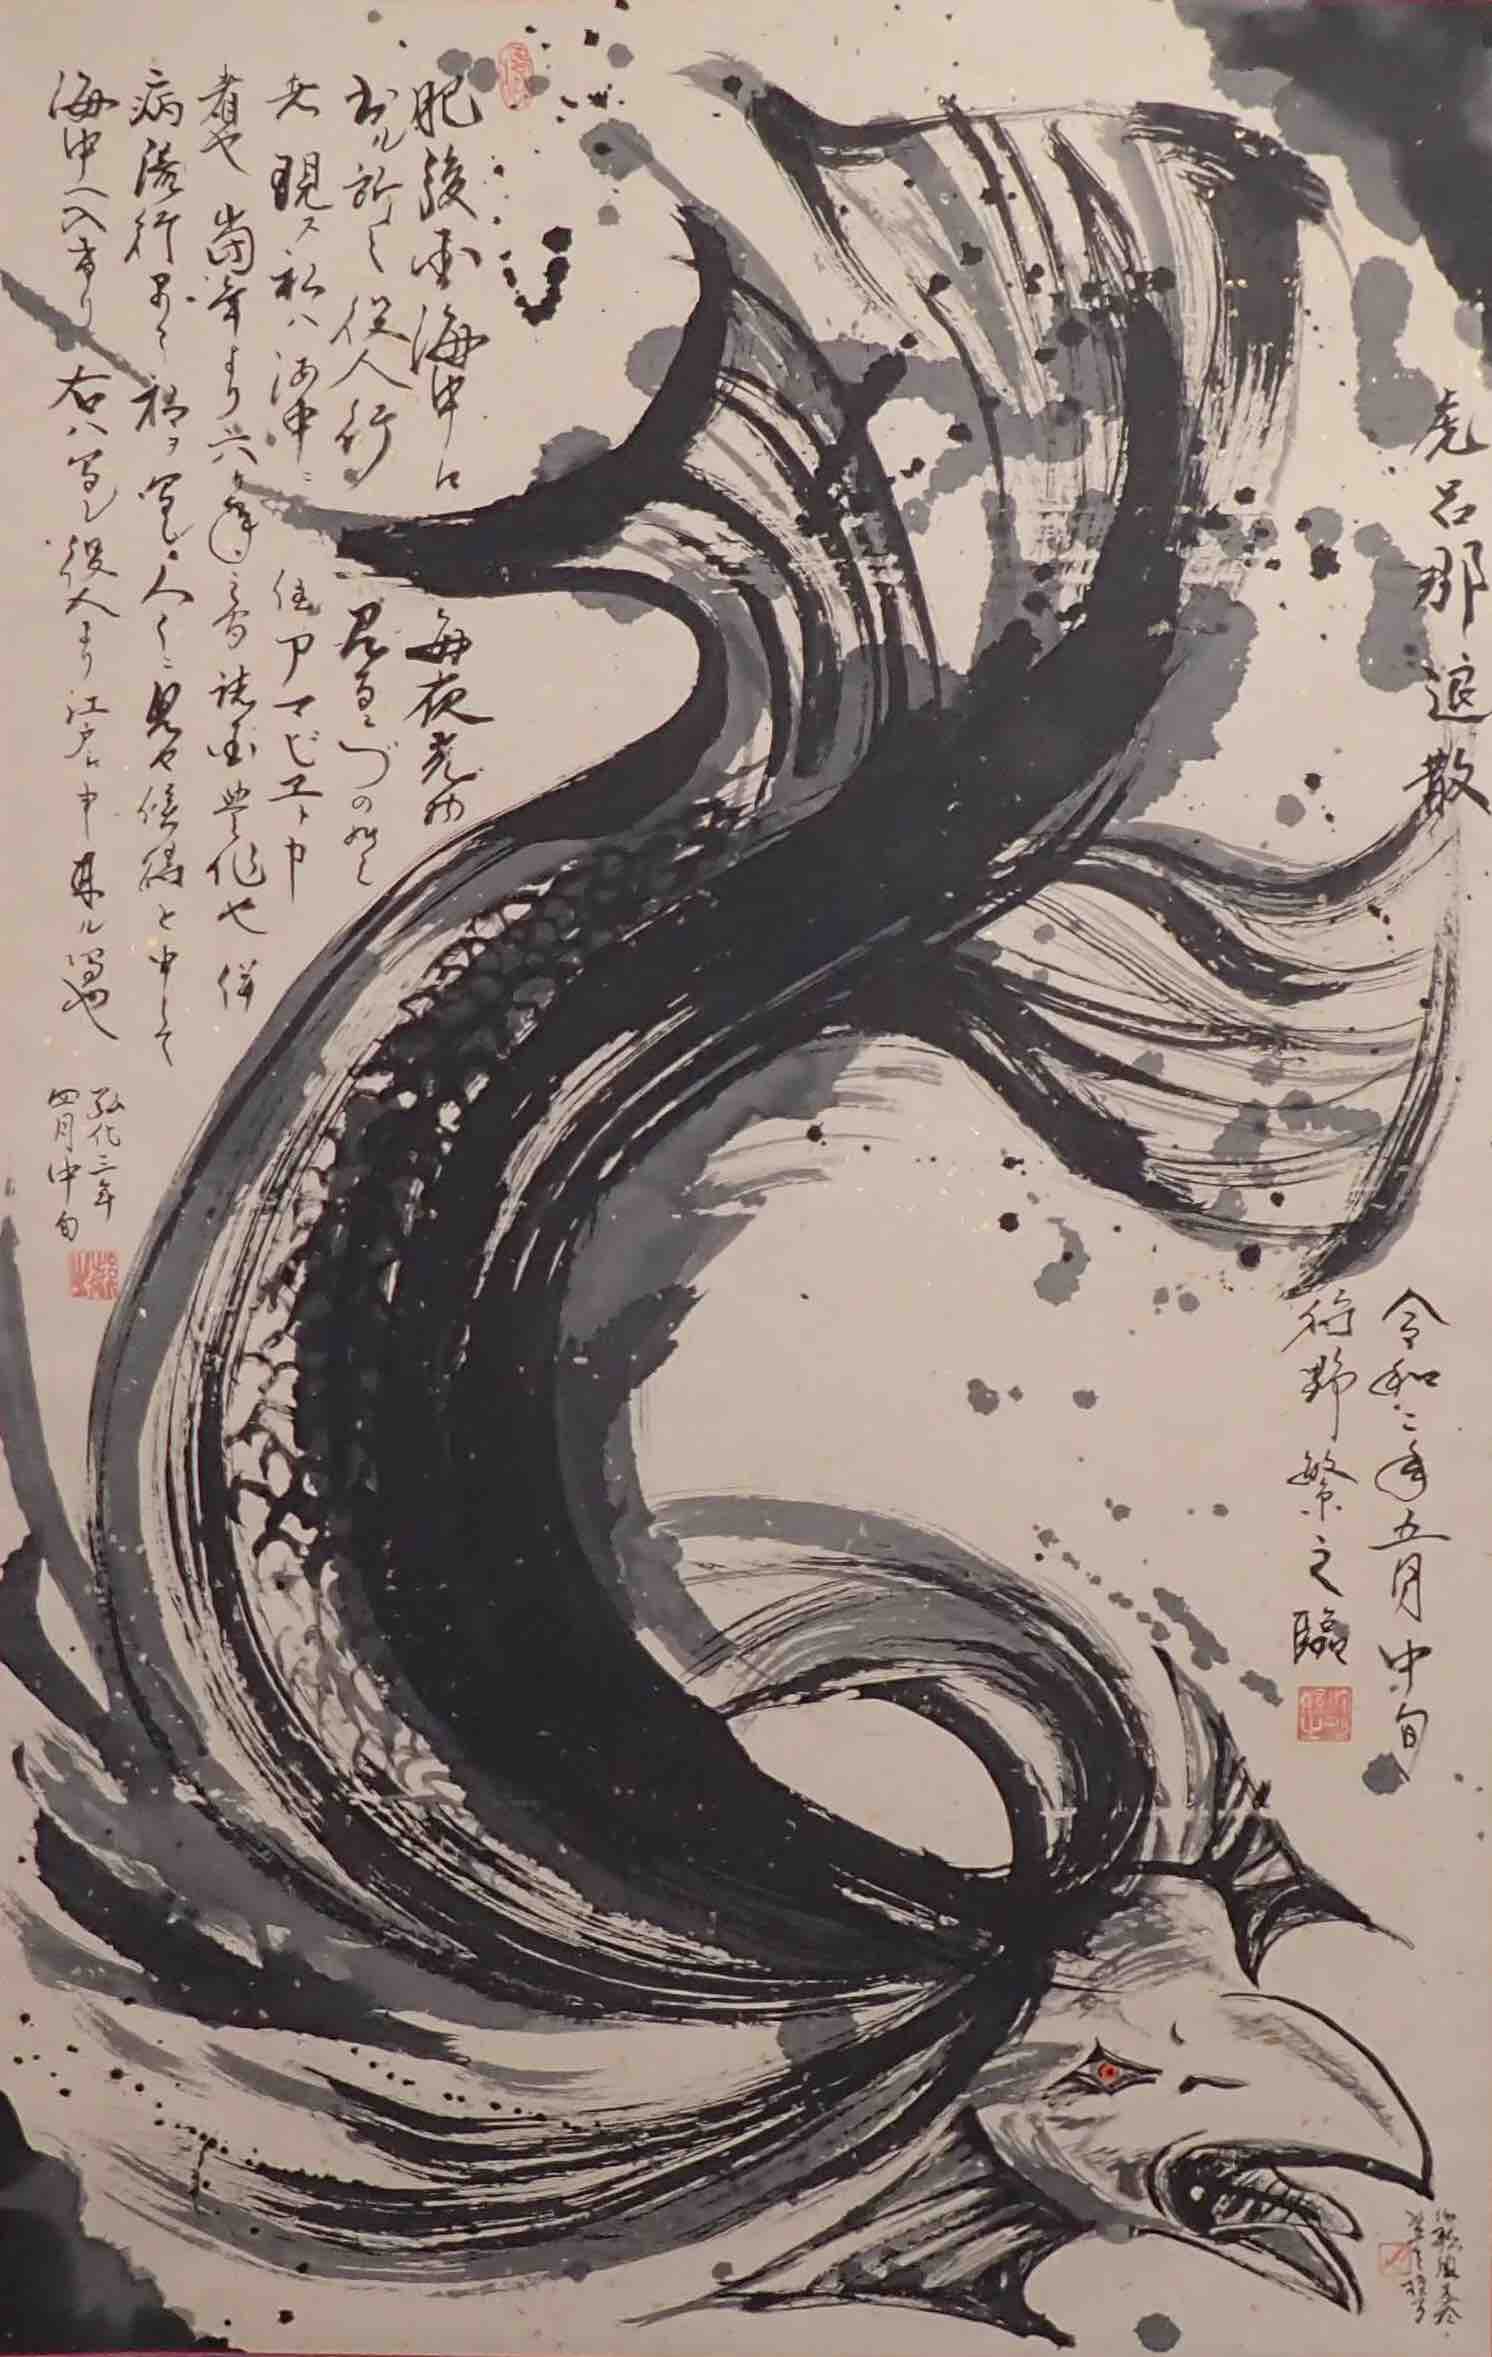 虎呂那退散
令和二年五月中旬
狩野繁之臨
肥後国海中江毎夜光物
出ル所之役人行見るニづの如く
者現ス私ハ海中ニ住アマビヱト申
者也當年より六ヶ年之間諸国豊作也併
病流行早々私ヲ写シ人々ニ見せ候得と申て
海中へ入けり右ハ写シ役人より江戸江申来ル写也
弘化三年
四月中旬